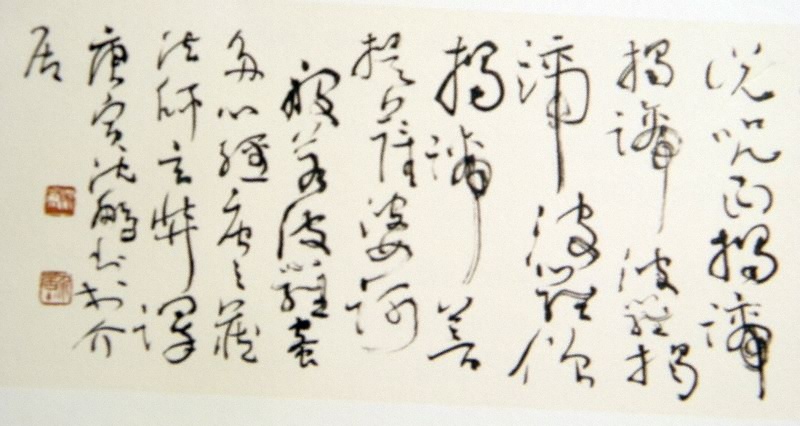 説呪曰揭諦
揭諦波羅揭
諦波羅僧
揭諦菩
提薩婆訶
般若波羅蜜
多心經唐三藏
法師玄奘譯
庚寅沈鵬書於介
居